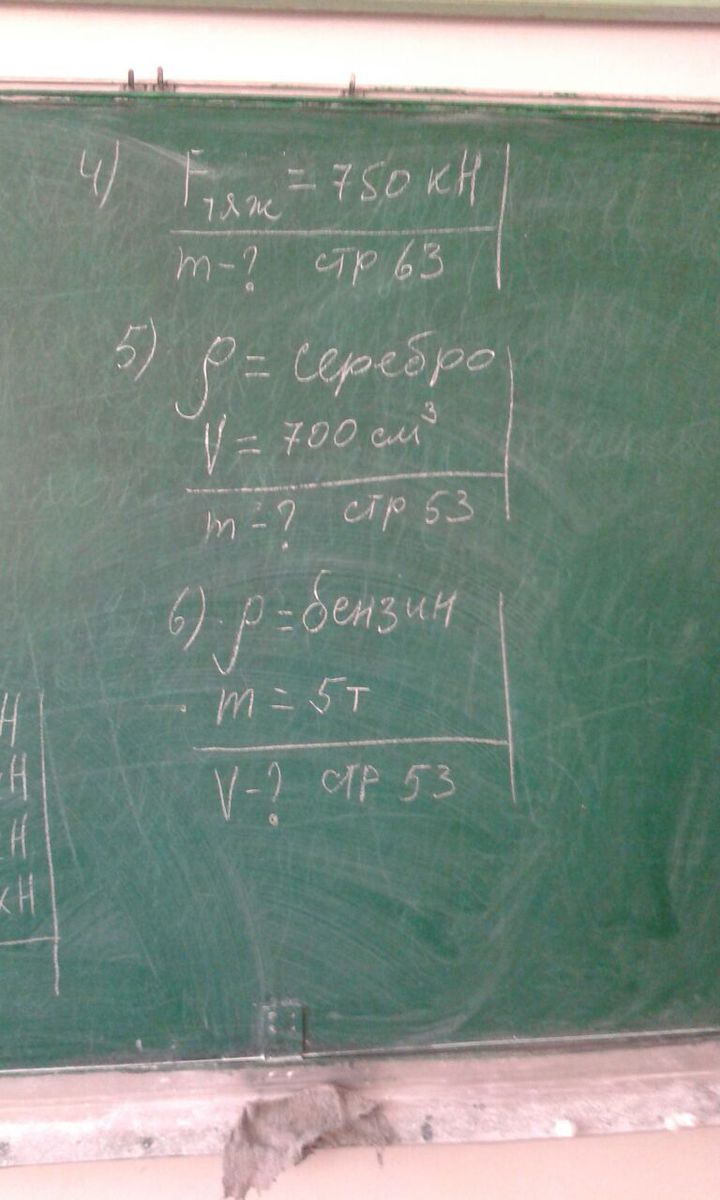 4) Fтяж = 750 кН
m - ? стр 63
5) ρ = серебро
V = 700 см³
m - ? стр 53
6) ρ = бензин
m = 5т
V - ? стр 53
Н
кН
Н
кН